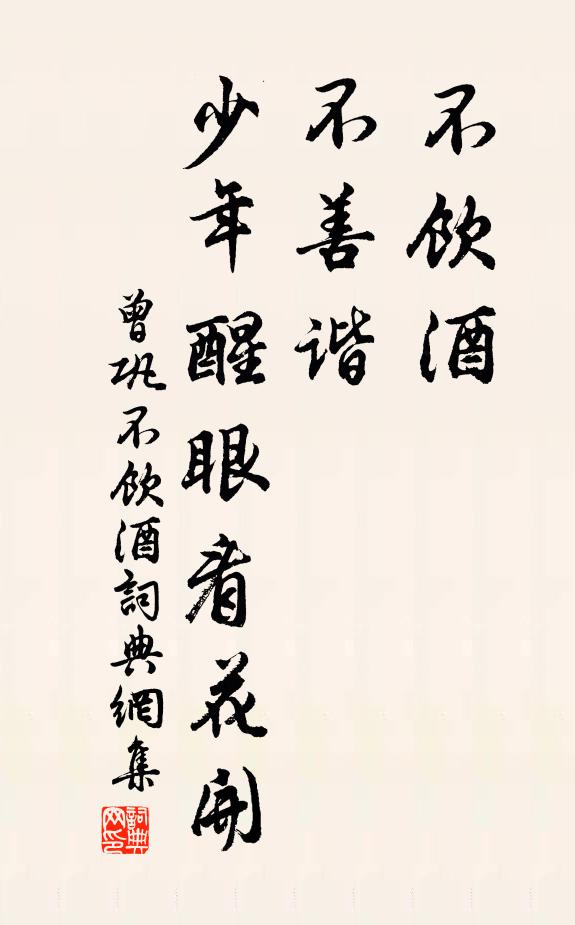 不飲酒
不善谐
少年醒眼看花開
曾巩不飲酒詞典網集
詞典
网印